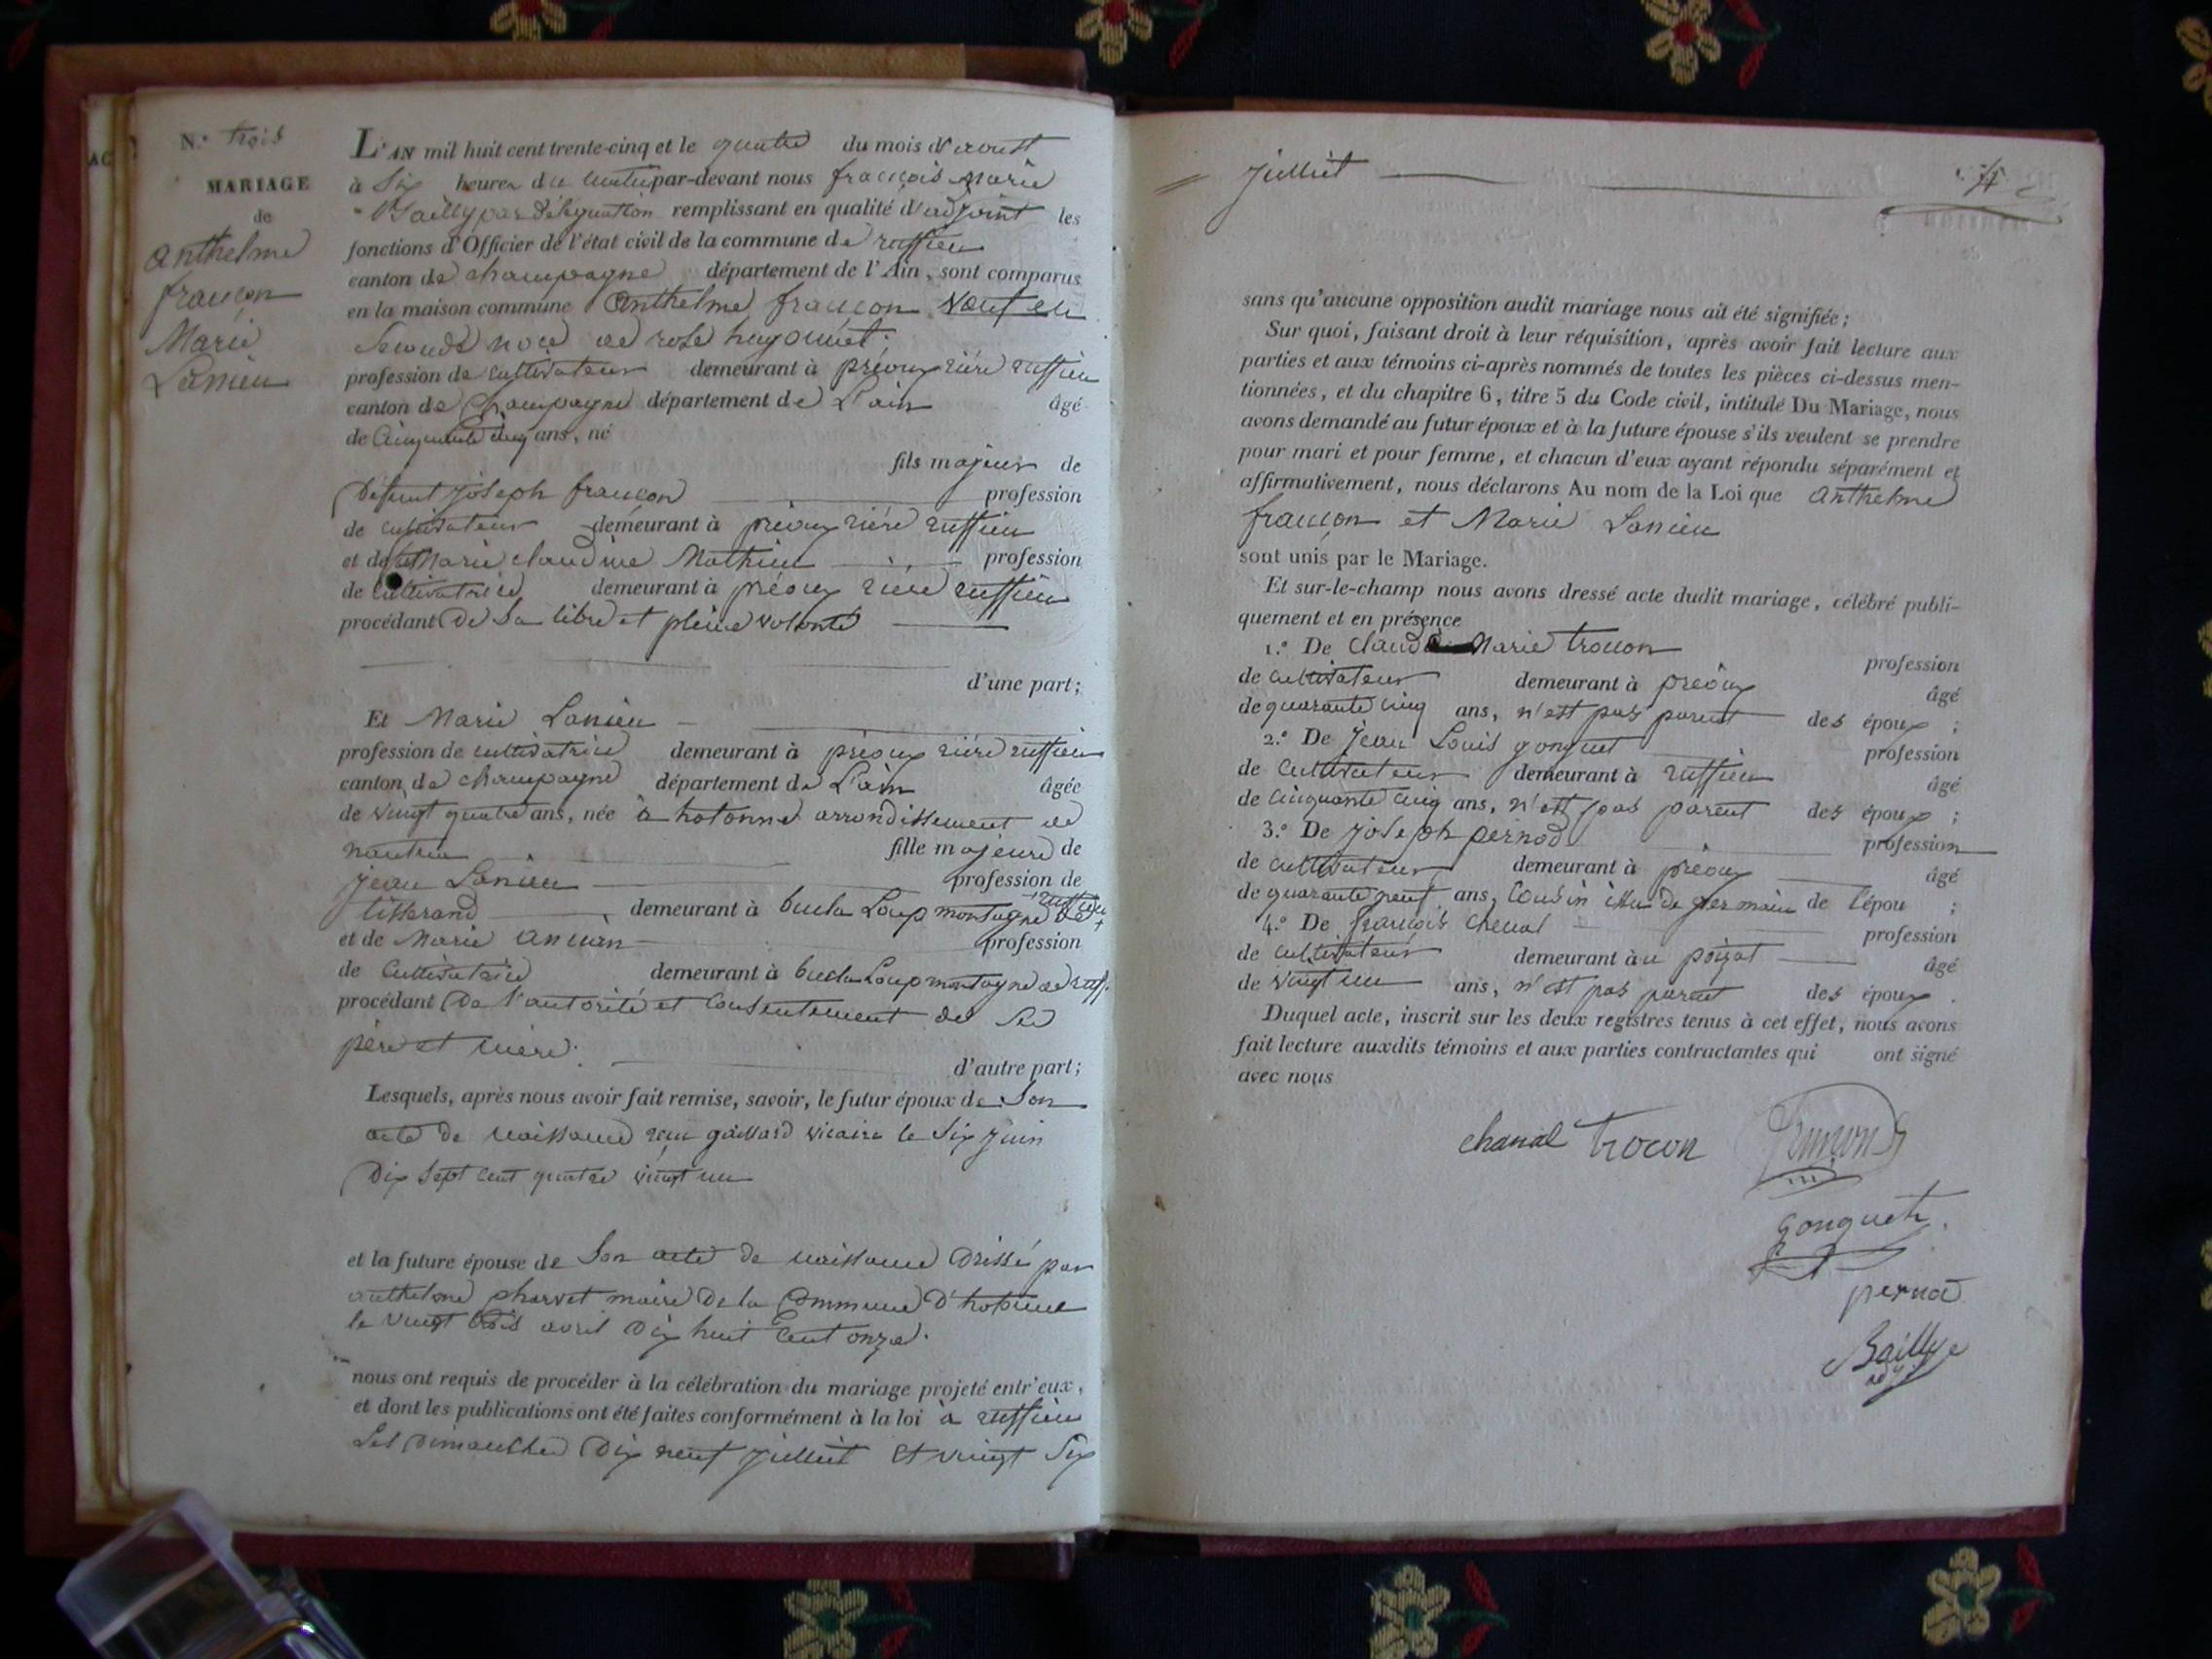 N.° trois
MARIAGE
de
anthelme
françon
Marie
Lanieu
L'AN mil huit cent trente-cinq et le quatre du mois d'aoust
à Six heures du matin par-devant nous françois marie
Bailly par délégation remplissant en qualité d'adjoint les
fonctions d'Officier de l'état civil de la commune de ruffieu
canton de champagne département de l'Ain, sont comparus
en la maison commune Anthelme françon veuf en
Seconde noce de rose hugonnet
profession de cultivateur demeurant à préoux rière ruffieu
canton de Champagne département de L'ain âgé
de Cinquante cinq ans, né
fils majeur de
Défunt joseph françon profession
de cultivateur demeurant à préoux rière ruffieu
et de Marie claudine Mathieu profession
de Cultivatrice demeurant à préoux rière ruffieu
procédant De Sa libre et pleine volonté
d'une part;
Et Marie Lanieu
profession de cultivatrice demeurant à préoux rière ruffieu
canton de champagne département de L'ain âgée
de vingt quatre ans, née à hotonne arrondissement de
nantua fille majeure de
jean Lanieu profession de
tisserand demeurant à Loup montagne de ruffieu
et de Marie profession
de Cultivatrice demeurant à Loup montagne de ruff.
procédant De l'autorité et Consentement de Ses
père et mère. d'autre part;
Lesquels, après nous avoir fait remise, savoir, le futur époux de Son
acte de naissance reçu gaillard vicaire le Six juin
Dix Sept cent quatre vingt un
et la future épouse de Son acte de naissance Dressé par
anthelme charvet maire De la Commune D'hotonne
le vingt trois avril Dix huit Cent onze.
nous ont requis de procéder à la célébration du mariage projeté entr'eux,
et dont les publications ont été faites conformément à la loi à ruffieu
Les Dimanches Dix neuf juillet et vingt Six
juillet
sans qu'aucune opposition audit mariage nous ait été signifiée;
Sur quoi, faisant droit à leur réquisition, après avoir fait lecture aux
parties et aux témoins ci-après nommés de toutes les pièces ci-dessus men-
tionnées, et du chapitre 6, titre 5 du Code civil, intitulé Du Mariage, nous
avons demandé au futur époux et à la future épouse s'ils veulent se prendre
pour mari et pour femme, et chacun d'eux ayant répondu séparément et
affirmativement, nous déclarons Au nom de la Loi que anthelme
françon et Marie Lanieu
sont unis par le Mariage.
Et sur-le-champ nous avons dressé acte dudit mariage, célébré publi-
quement et en présence
1.° De Claude Marie trocon profession
de cultivateur demeurant à préoux âgé
de quarante cinq ans, n'est pas parent des époux ;
2.° De jean Louis gonguet profession
de Cultivateur demeurant à ruffieu âgé
de cinquante cinq ans, n'est pas parent des époux ;
3.° De joseph pernod profession
de cultivateur demeurant à préoux âgé
de quarante neuf ans, Cousin issu de germain de l'épou ;
4.° De françois chenal profession
de cultivateur demeurant au poizat âgé
de vingt un ans, n'est pas parent des époux .
Duquel acte, inscrit sur les deux registres tenus à cet effet, nous avons
fait lecture auxdits témoins et aux parties contractantes qui ont signé
avec nous
chanal trocon
gonguet
pernod
Bailly
adj.